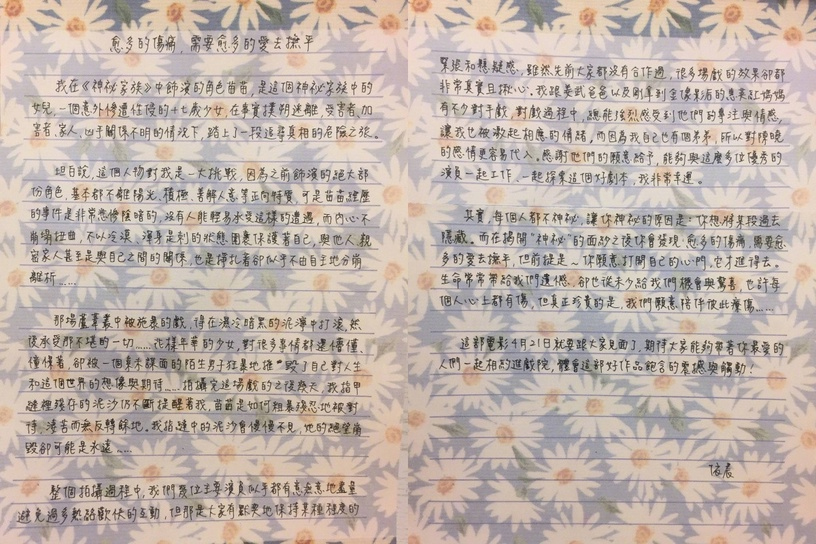 愈多的傷痛，需要愈多的愛去撫平
我在《神祕家族》中飾演的角色苗苗，是這個神祕家族中的
女兒，一個意外慘遭性侵的十七歲少女，在事實撲朔迷離，受害者、加
害者、家人、兇手關係不明的情況下，踏上了一段追尋真相的危險之旅。
坦白說，這個人物對我是一大挑戰，因為之前飾演的絕大部
份角色，基本都不離陽光、積極、善解人意等正向特質，可是苗苗經歷
的事件是非常悲慘陰暗的，沒有人能輕易承受這樣的遭遇，而內心不
崩塌扭曲，不以冷漠、渾身是刺的狀態圍裹保護著自己，與他人、親
密家人甚至是與自己之間的關係，也是掙扎著卻似乎不由自主地分崩
離析……
那場蘆葦叢中被施暴的戲，得在濕冷暗黑的泥濘中打滾，然
後承受那不堪的一切……花樣年華的少女，對很多事情都還懵懂、
憧憬著，卻被一個素未謀面的陌生男子狂暴地摧毀了自己對人生
和這個世界的想像與期待……拍攝完這場戲的之後幾天，我指甲
縫裡殘存的泥沙仍不斷提醒著我，苗苗是如何粗暴殘忍地被對
待，淒苦而無反轉餘地。我指縫中的泥沙會慢慢不見，她的絕望傷
毀卻可能是永遠……
整個拍攝過程中，我們幾位主要演員似乎都有意無意地盡量
避免過多熱絡歡快的互動，但那是大家有默契地保持某種程度的
緊張和懸疑感，雖然先前大家都沒有合作過，很多場戲的效果卻都
非常真實且揪心，我跟姜武爸爸以及剛拿到金像影后的惠英紅媽媽
有不少對手戲，對戲過程中，總能強烈感受到他們的專注與情感，
讓我也被激起相應的情緒。而因為我自己也有個弟弟，所以對陳曉
的感情更容易代入。感謝他們的願意給予，能夠與這麼多位優秀的
演員一起工作、一起探索這個好劇本，我非常幸運。
其實，每個人都不神祕，讓你神祕的原因是：你想將某段過去
隱藏。而在揭開"神祕"的面紗之後你會發現，愈多的傷痛，需要愈
多的愛去撫平，但前提是～你願意打開自己的心門，它才進得去。
生命常常帶給我們遺憾，卻也從未少給我們機會與驚喜，也許每
個人心上都有傷，但真正珍貴的是，我們願意陪伴彼此療傷……
這部電影4月21日就要跟大家見面了，期待大家能夠帶著你最愛的
人們一起相約進戲院，體會這部好作品飽含的震撼與觸動！
依晨